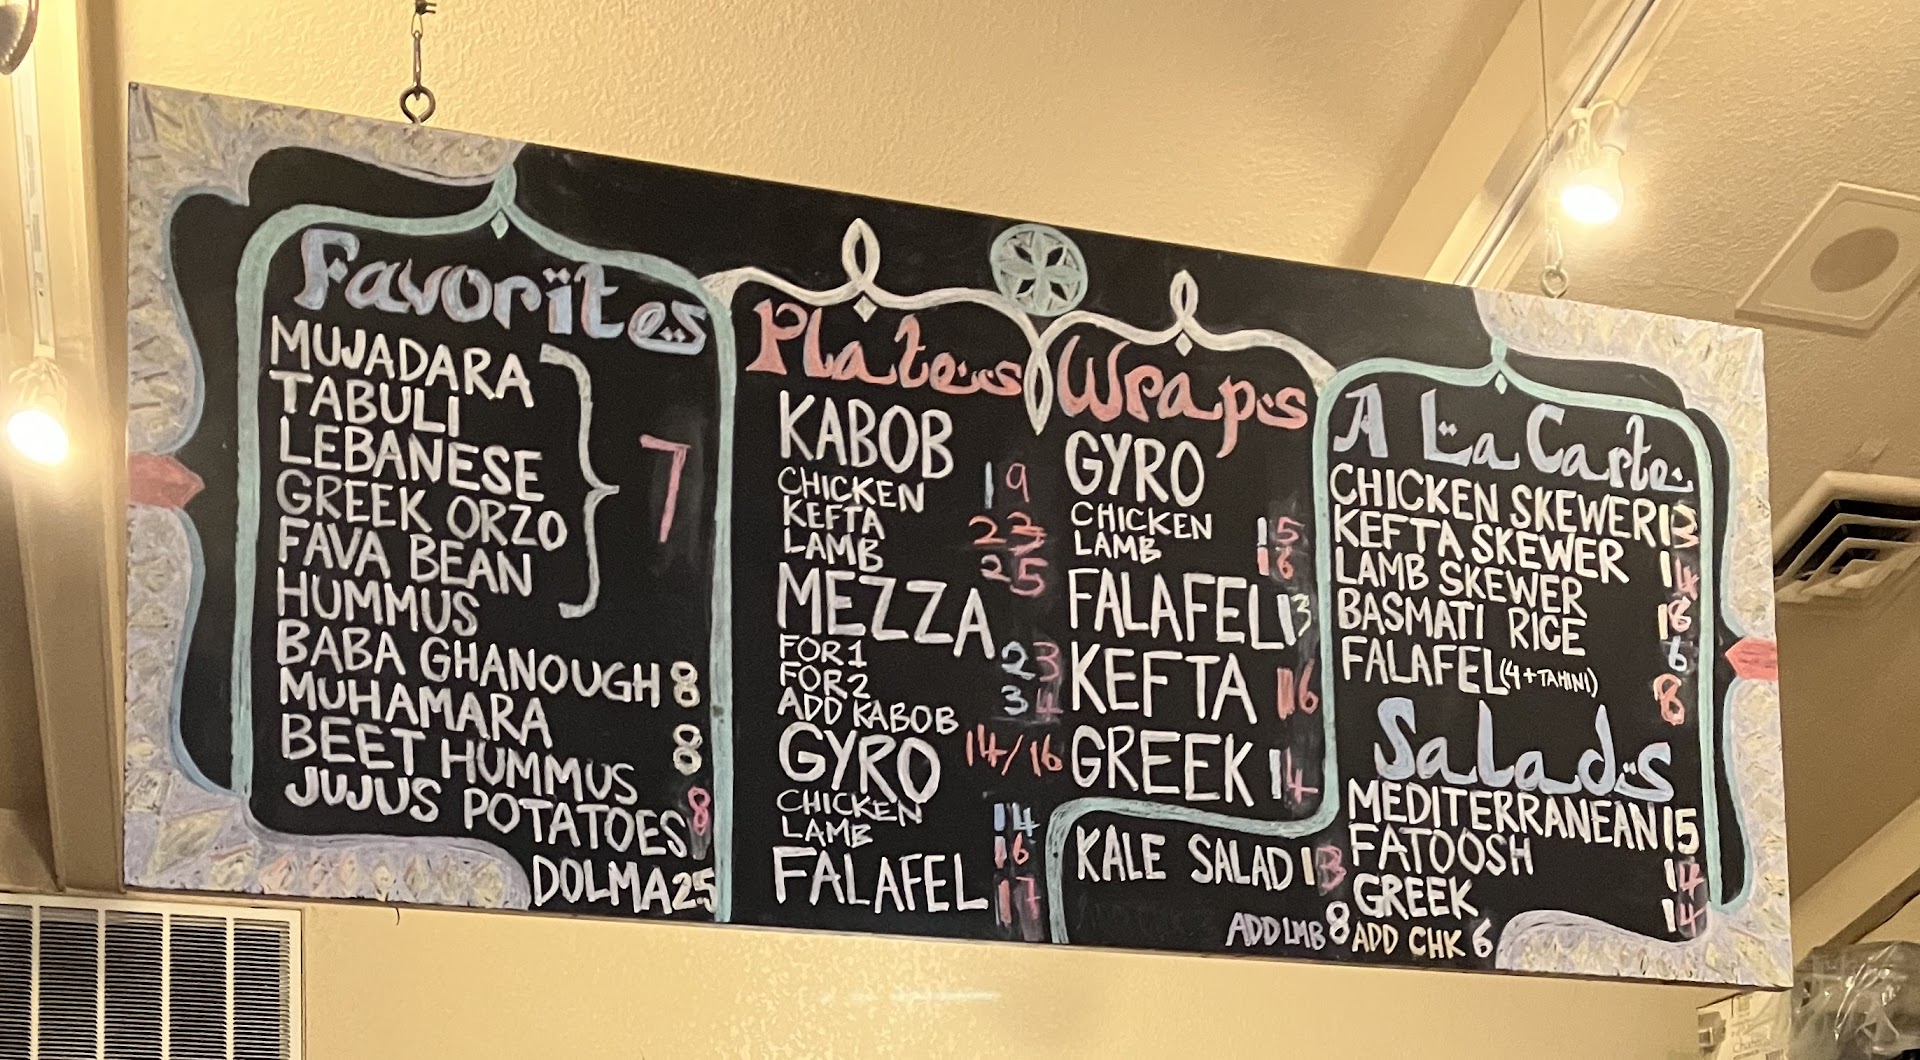 Favorites
MUJADARA
TABULI
LEBANESE
GREEK ORZO
FAVA BEAN
HUMMUS
7
BABA GHANOUGH 8
MUHAMARA 8
BEET HUMMUS 8
JUJUS POTATOES 8
DOLMA 2.5
Plates
KABOB
CHICKEN 19
KEFTA 23
LAMB 25
MEZZA
FOR 1 23
FOR 2 34
ADD KABOB 14/16
GYRO
CHICKEN 14
LAMB 16
FALAFEL 17
Wraps
GYRO
CHICKEN 15
LAMB 16
FALAFEL 13
KEFTA 16
GREEK 14
KALE SALAD 13
ADD LMB 8
A La Carte
CHICKEN SKEWER 13
KEFTA SKEWER 14
LAMB SKEWER 16
BASMATI RICE 6
FALAFEL (4 + TAHINI) 8
Salads
MEDITERRANEAN 15
FATOOSH 14
GREEK 14
ADD CHK 6